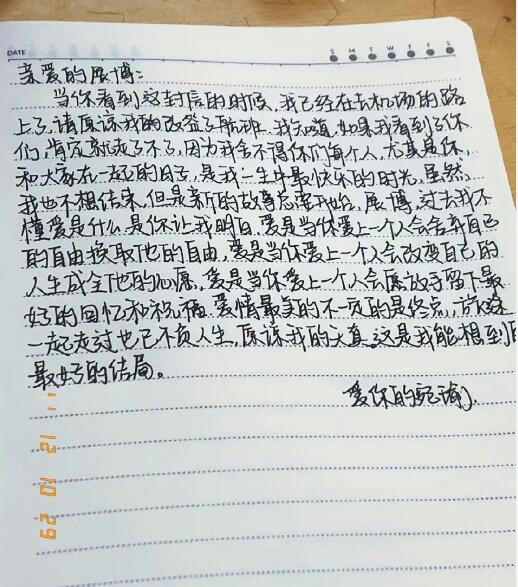 DATE S M T W T F S
亲爱的展博：
当你看到这封信的时候，我已经在去机场的路
上了，请原谅我的改签了航班。我知道，如果我看到了你
们，肯定就走不了，因为我舍不得你们每个人，尤其是你，
和大家在一起的日子，是我一生中最快乐的时光，虽然
我也不想结束，但是新的故事总要开始，展博，过去我不
懂爱是什么，是你让我明白，爱是当你爱上一个人会舍弃自己
的自由换取他的自由，爱是当你爱上一个人会改变自己的
人生成全他的心愿，爱是当你爱上一个人会愿放手留下最
好的回忆和祝福，爱情最美的不一定的是终点，旅途
一起走过也已不负人生，原谅我的天真，这是我能想到的
最好的结局。
爱你的宛瑜
12 10 29